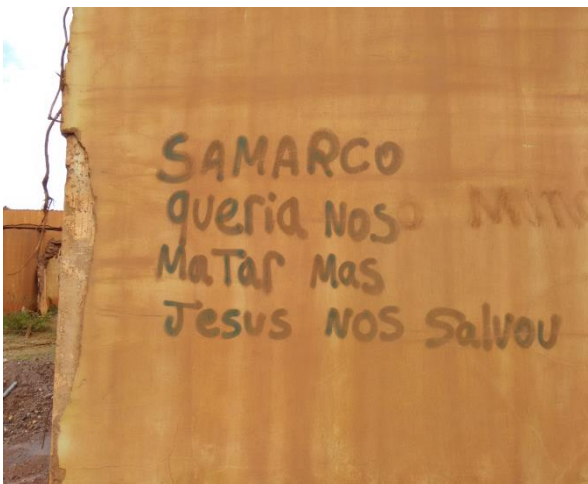 SAMARCO
queria Nos
MaTar Mas
Jesus NOS Salvou